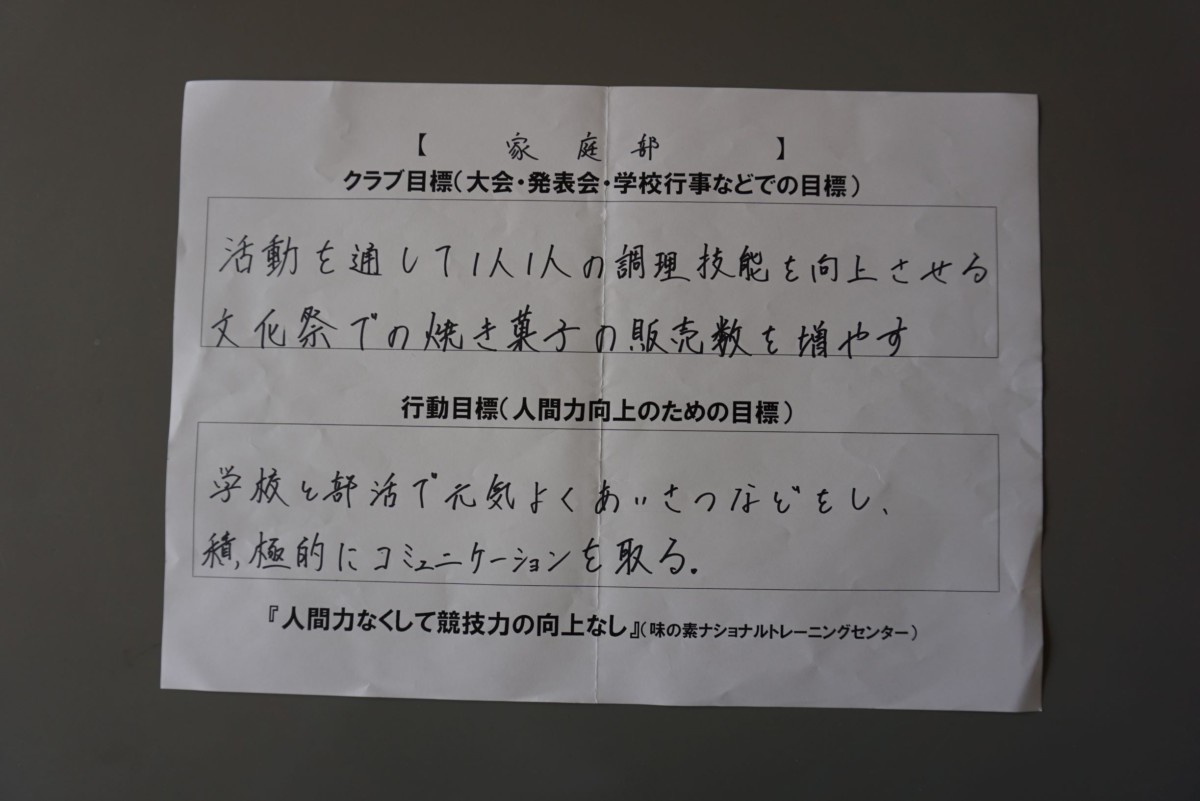 【 家庭部 】
クラブ目標(大会・発表会・学校行事などでの目標)
活動を通して1人1人の調理技能を向上させる
文化祭での焼き菓子の販売数を増やす
行動目標(人間力向上のための目標)
学校と部活で元気よくあいさつなどをし、
積極的にコミュニケーションを取る。
『人間力なくして競技力の向上なし』(味の素ナショナルトレーニングセンター)